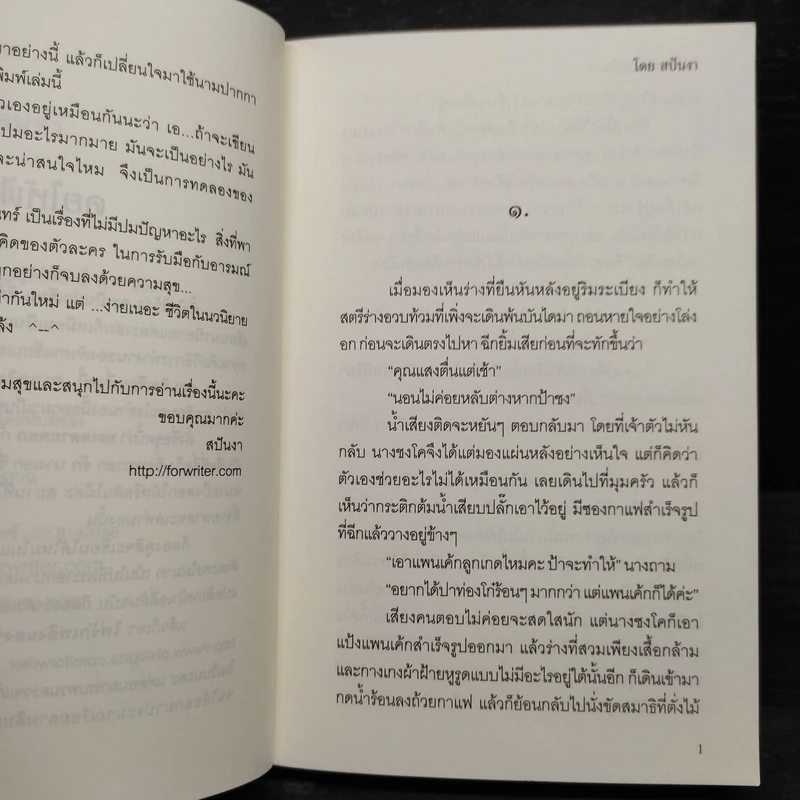 มาอย่างนี้ แล้วก็เปลี่ยนใจมาใช้นามปากกา
พิมพ์เล่มนี้
ัวเองอยู่เหมือนกันนะว่า เอ...ถ้าจะเขียน
ปมอะไรมากมาย มันจะเป็นอย่างไร มัน
จะน่าสนใจไหม จึงเป็นการทดลองของ
นทร์ เป็นเรื่องที่ไม่มีปมปัญหาอะไร สิ่งที่พา
คิดของตัวละคร ในการรับมือกับอารมณ์
ทุกอย่างก็จบลงด้วยความสุข...
ว่ากันใหม่ แต่ ...ง่ายเนอะ ชีวิตในนวนิยาย
ล้ง ^--^
มสุขและสนุกไปกับการอ่านเรื่องนี้นะคะ
ขอบคุณมากค่ะ
สปันงา
http://forwriter.com
โดย สปันงา
๑.
เมื่อมองเห็นร่างที่ยืนหันหลังอยู่ริมระเบียง ก็ทำให้
สตรีร่างอวบท้วมที่เพิ่งจะเดินพ้นบันไดมา ถอนหายใจอย่างโล่ง
อก ก่อนจะเดินตรงไปหา ฉีกยิ้มเสียก่อนที่จะทักขึ้นว่า
“คุณแสงตื่นแต่เช้า”
“นอนไม่ค่อยหลับต่างหากป้าชง”
น้ำเสียงติดจะหยันๆ ตอบกลับมา โดยที่เจ้าตัวไม่หัน
กลับ นางชงโคจึงได้แต่มองแผ่นหลังอย่างเห็นใจ แต่ก็คิดว่า
ตัวเองช่วยอะไรไม่ได้เหมือนกัน เลยเดินไปที่มุมครัว แล้วก็
เห็นว่ากระติกต้มน้ำเสียบปลั๊กเอาไว้อยู่ มีซองกาแฟสำเร็จรูป
ที่ฉีกแล้ววางอยู่ข้างๆ
“เอาแพนเค้กลูกเกดไหมคะ ป้าจะทำให้” นางถาม
“อยากได้ปาท่องโก๋ร้อนๆ มากกว่า แต่แพนเค้กก็ได้ค่ะ”
เสียงคนตอบไม่ค่อยจะสดใสนัก แต่นางชงโคก็เอา
แป้งแพนเค้กสำเร็จรูปออกมา แล้วร่างที่สวมเพียงเสื้อกล้าม
และกางเกงผ้าฝ้ายหูรูดแบบไม่มีอะไรอยู่ใต้นั้นอีก ก็เดินเข้ามา
กดน้ำร้อนลงถ้วยกาแฟ แล้วก็ย้อนกลับไปนั่งขัดสมาธิที่ตั่งไม้
1